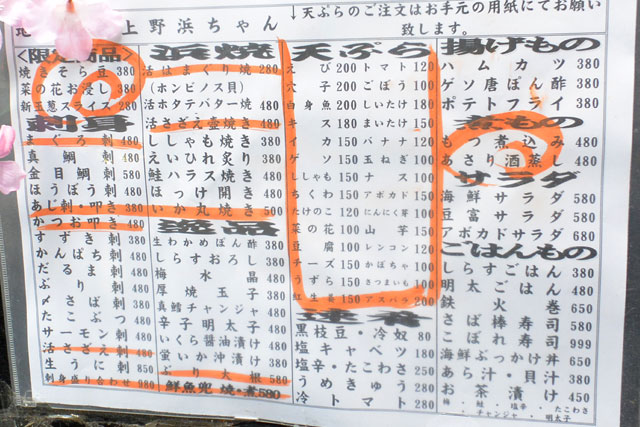 上野浜ちゃん
↓天ぷらのご注文はお手元の用紙にてお願い
致します。
<限定商品>
焼きそら豆 380
菜の花お浸し 380
新玉葱スライス 280
刺身
まぐろ刺 480
真鯛刺 480
金目鯛刺 580
ほうぼう刺 480
あじ刺・叩き 380
かつお叩き 480
すずき刺 380
かんぱち刺 480
だるま刺 480
ぶり刺 480
〆さば刺 380
たこぶつ 480
サーモン刺 480
活さざえ刺 480
生うに 850
刺身盛り合わせ 980
浜焼
活はまぐり焼 280
(ホンビノス貝)
活ホタテバター焼 480
活さざえ壺焼き 480
ししゃも焼き 380
えいひれ炙り 380
鮭ハラス焼き 480
ほっけ開き 480
いか丸焼き 500
逸品
生わかめぽん酢 380
しらすおろし 380
梅水晶 480
厚焼玉子 380
真鱈チャンジャ 480
辛子明太子 480
いくら醤油漬け 480
蛍いか沖漬け 380
ぶり大根 580
鮮魚兜焼・煮 580
天ぷら
えび 200 トマト 120
穴子 200 ごぼう 100
白身魚 200 しいたけ 180
キス 180 まいたけ 150
イカ 150 バナナ 120
ゲソ 150 玉ねぎ 100
ししゃも 150 ナス 100
ちくわ 150 アボカド 150
たけのこ 120 にんにく芽 100
菜の花 100 山芋 150
豆腐 100 レンコン 120
チーズ 150 かぼちゃ 100
うずら 150 さつまいも 100
紅生姜 150 アスパラ 200
黒枝豆・冷奴 80
塩キャベツ 180
塩辛・たこわさ 250
うめきゅう 280
冷トマト 280
揚げもの
ハムカツ 380
ゲソ唐ぽん酢 380
ポテトフライ 380
煮もの
もつ煮込み 480
あさり酒蒸し 480
サラダ
海鮮サラダ 580
豆富サラダ 580
アボカドサラダ 680
ごはんもの
しらすごはん 380
明太ごはん 480
鉄火巻 650
さば棒寿司 580
こぼれ寿司 999
海鮮ぶっかけ丼 650
あら汁・貝汁 380
お茶漬け 450
梅・鮭・塩辛・たこわさ
・チャンジャ・明太子